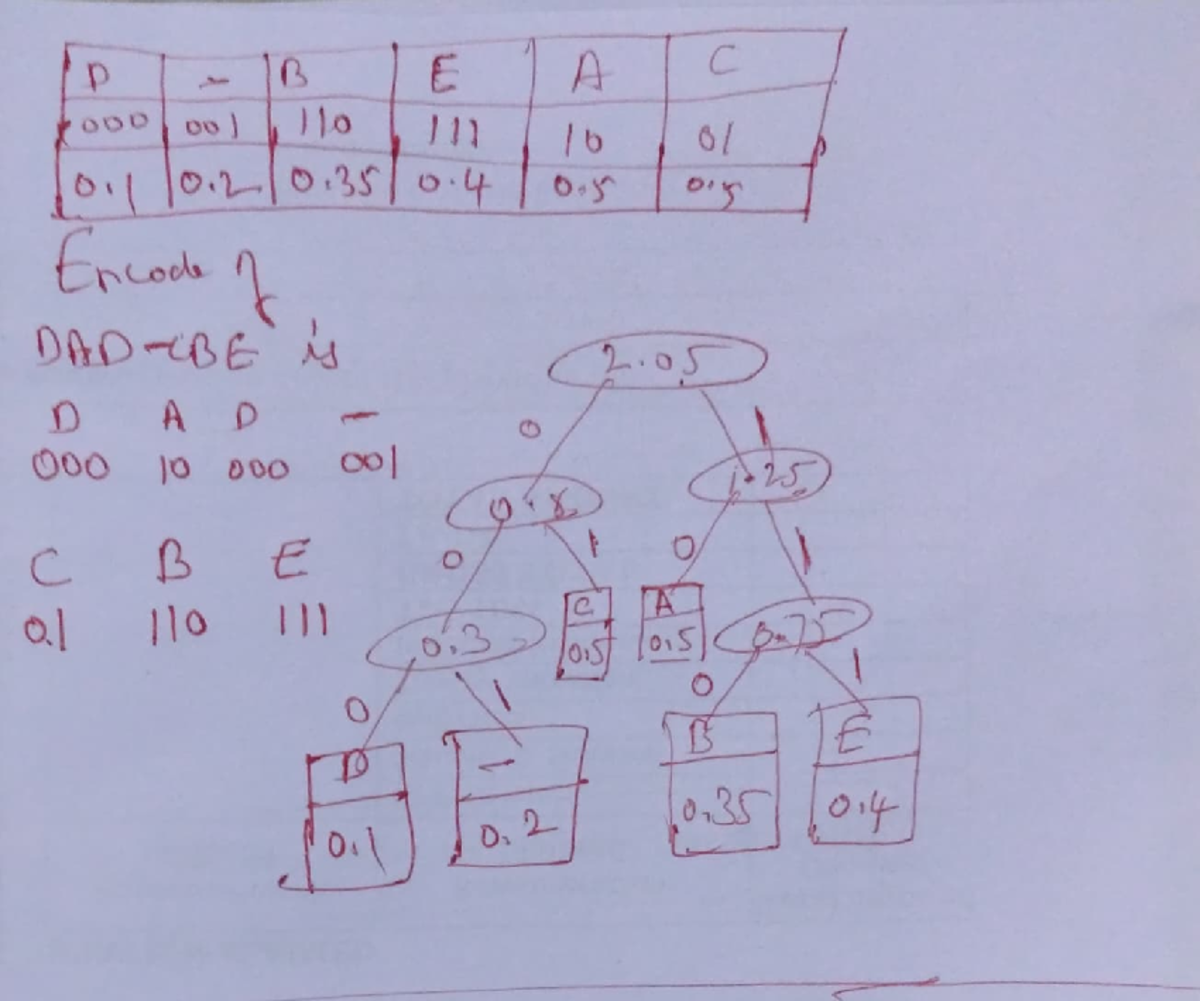 D - B E A C
000 001 110 111 10 01
0.1 0.2 0.35 0.4 0.5 0.5
Encode of
DAD-CBE is
D A D -
000 10 000 001
C B E
01 110 111
2.05
0 1
0.8 1.25
0 1 0 1
0.3 C A 0.75
0.5 0.5
0 1 0 1
D - B E
0.1 0.2 0.35 0.4